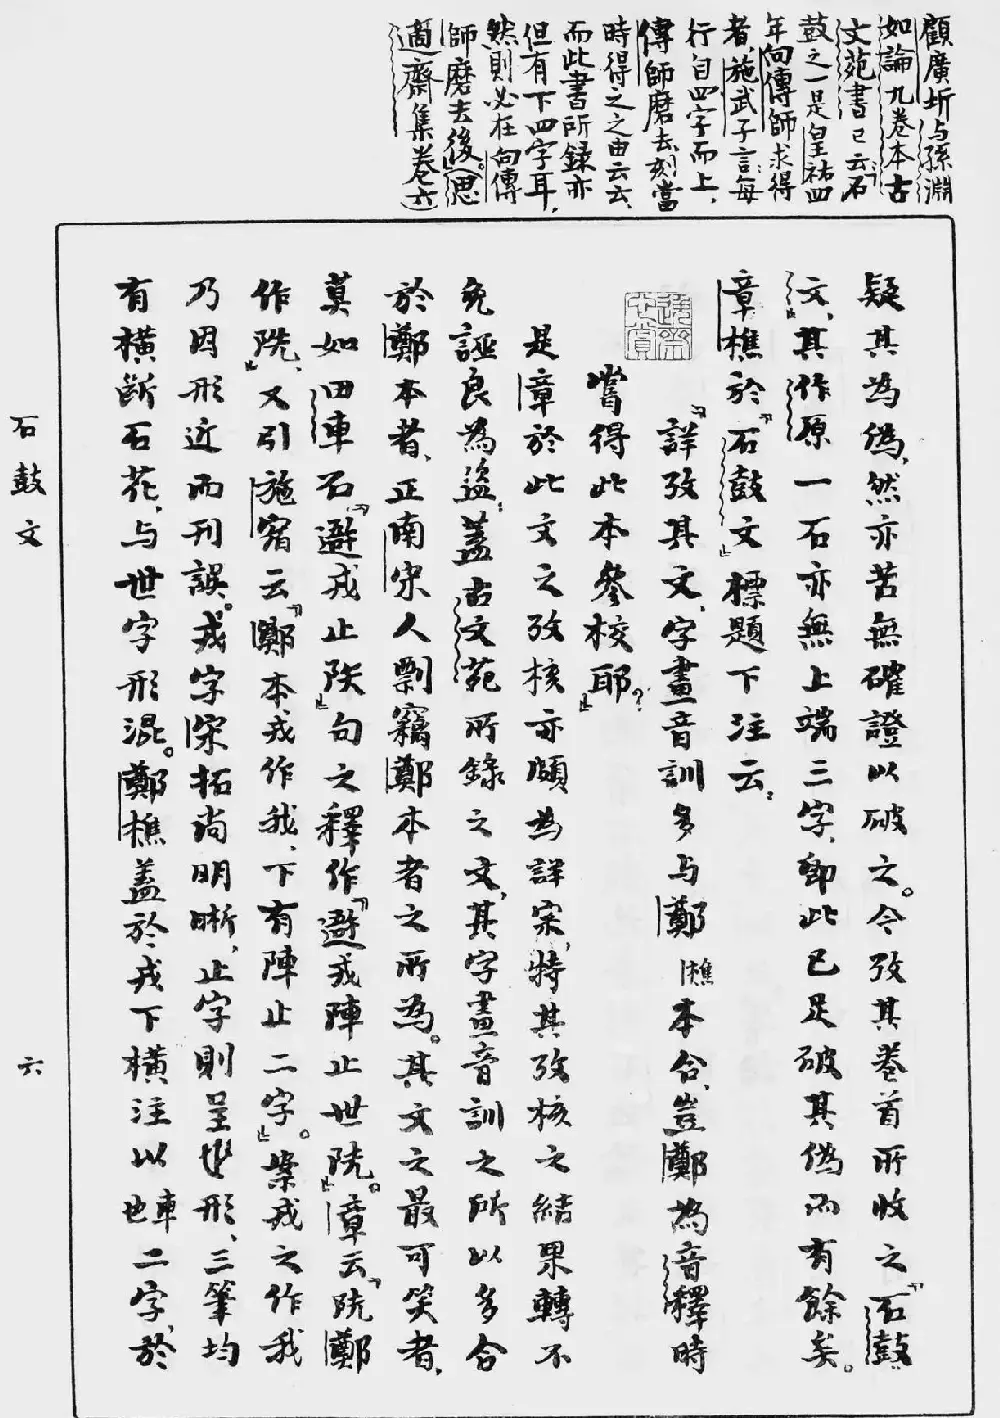 顧廣圻与孫淵
如論九卷本古
文苑書已云「石
鼓之一是皇祐四
年向傳師求得
者，施武子言：每
行自四字而上，
傳師磨去刻當
時得之之由云云，
而此書所錄亦
但有下四字耳，
然則必在向傳
師磨去後。（思
適齋集卷六）
疑其為偽，然亦苦無確證以破之。今攷其卷首所收之「石鼓
文」，其作原一石亦無上端三字，即此已足破其偽而有餘矣。
章樵於「石鼓文」標題下注云：
「詳攷其文，字畫音訓多与鄭樵本合，豈鄭為音釋時
嘗得此本參校耶？」
是章於此文之攷核亦頗為詳案，特其攷核之結果轉不
免誣良為盜：蓋古文苑所錄之文，其字畫音訓之所以多合
於鄭本者，正南宋人剽竊鄭本者之所為。其文之最可笑者，
莫如田車石「避戎止陕」句之釋作「避我陣止世陒」。章云「陒鄭
作陒」，又引施宿云「鄭本戎作我，下有陣止二字。」案戎之作我
乃因形近而刊誤。戎字宋拓尚明晰，止字則呈形，三筆均
有橫斷石花，与世字形混。鄭樵蓋於戎下橫注以世車二字，於
石鼓文
六